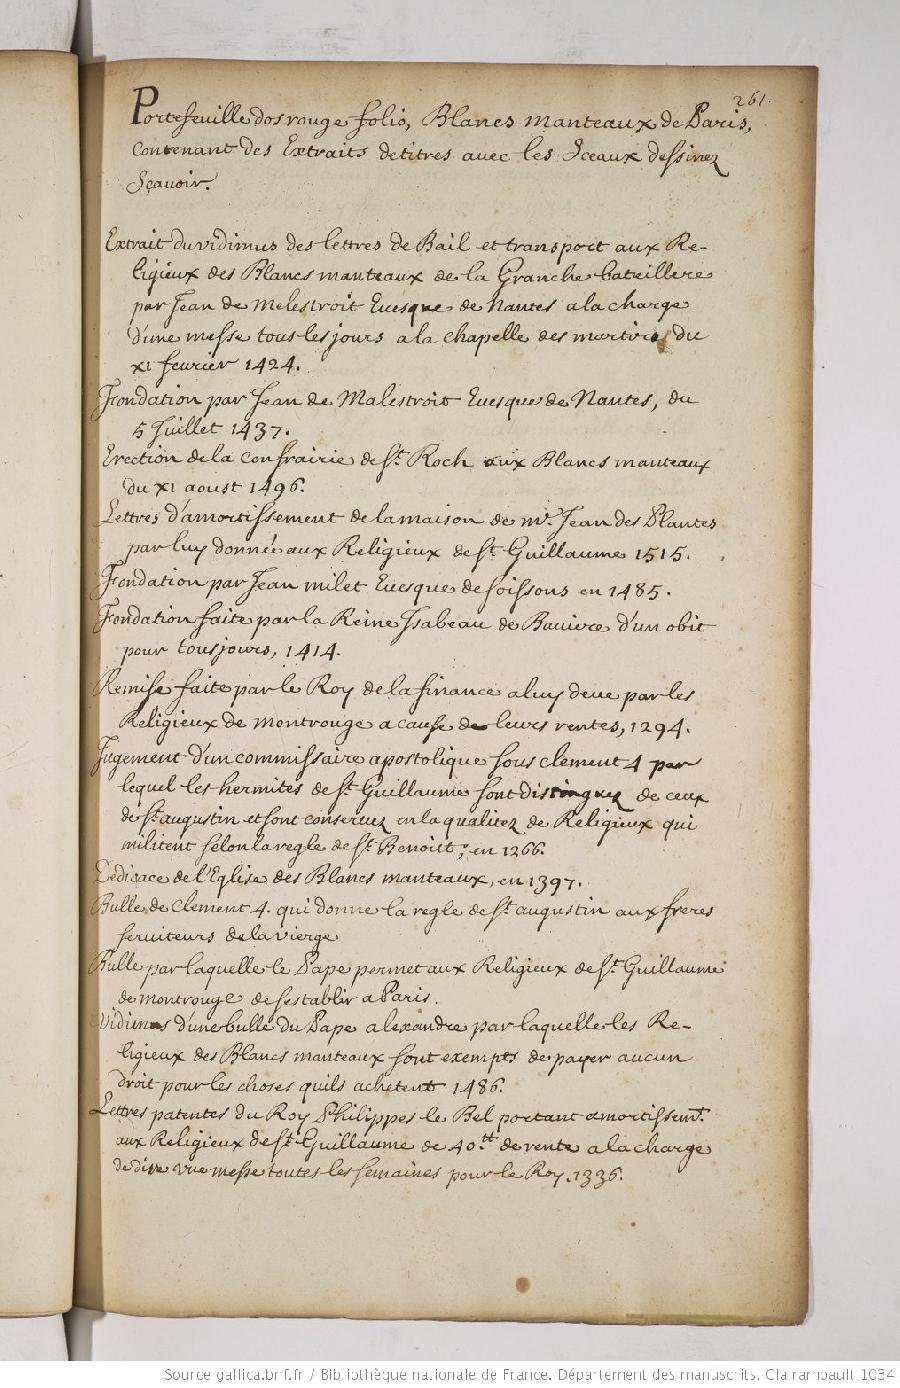 261.
Portefeuille dos rouge folio, Blancs manteaux de Paris,
contenant des Extraits de titres avec les Sceaux dessinez
Sçavoir.
Extrait du vidimus des lettres de Bail et transport aux Re-
ligieux des Blancs manteaux de la Granche bateillere
par Jean de Melestroit Evesque de Nantes a la charge
d'une messe tous les jours a la chapelle des martirs du
xi fevrier 1424.
Fondation par Jean de Malestroit Evesque de Nantes, du
5 Juillet 1437.
Erection de la confrairie de St. Roch aux Blancs manteaux
du xi aoust 1496.
Lettres d'amortissement de la maison de mr. Jean des Plantes
par luy donnée aux Religieux de St Guillaume 1515.
Fondation par Jean milet Evesque de soissons en 1485.
Fondation faite par la Reine Isabeau de Baviere d'un obit
pour tousjours, 1414.
Remise faite par le Roy de la finance a luy deue par les
Religieux de montrouge a cause de leurs rentes, 1294.
Jugement d'un commissaire apostolique sous clement 4 par
lequel les hermites de St. Guillaume sont distinguez de ceux
de St. augustin et sont conservez en la qualitez de Religieux qui
militent selon la regle de St. Benoist; en 1266.
Dedicace de l'Eglise des Blancs manteaux, en 1397.
Bulle de clement 4. qui donne la regle de St. augustin aux freres
serviteurs de la vierge
Bulle par laquelle le Pape permet aux Religieux de St. Guillaume
de montrouge de s'establir a Paris.
Vidimus d'une bulle du Pape alexandre par laquelle les Re-
ligieux des Blancs manteaux sont exempts de payer aucun
droit pour les choses quils achetent 1486.
Lettres patentes du Roy Philippes le Bel portant amortissemt.
aux Religieux de St. Guillaume de 40.tt de rente a la charge
de dire une messe toutes les semaines pour le Roy. 1336.
Source gallica.bnf.fr / Bibliothèque nationale de France. Département des manuscrits. Clairambault 1034